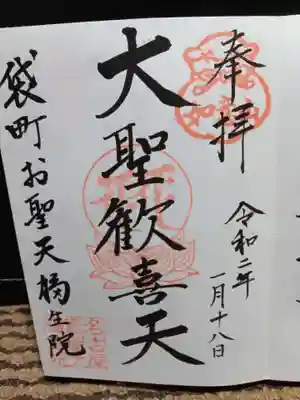 奉拝
令和二年
一月十八日
大聖歓喜天
袋町お聖天福生院
名古屋